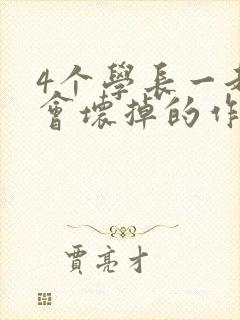 4个學長一
會壞掉的作
賈亮才